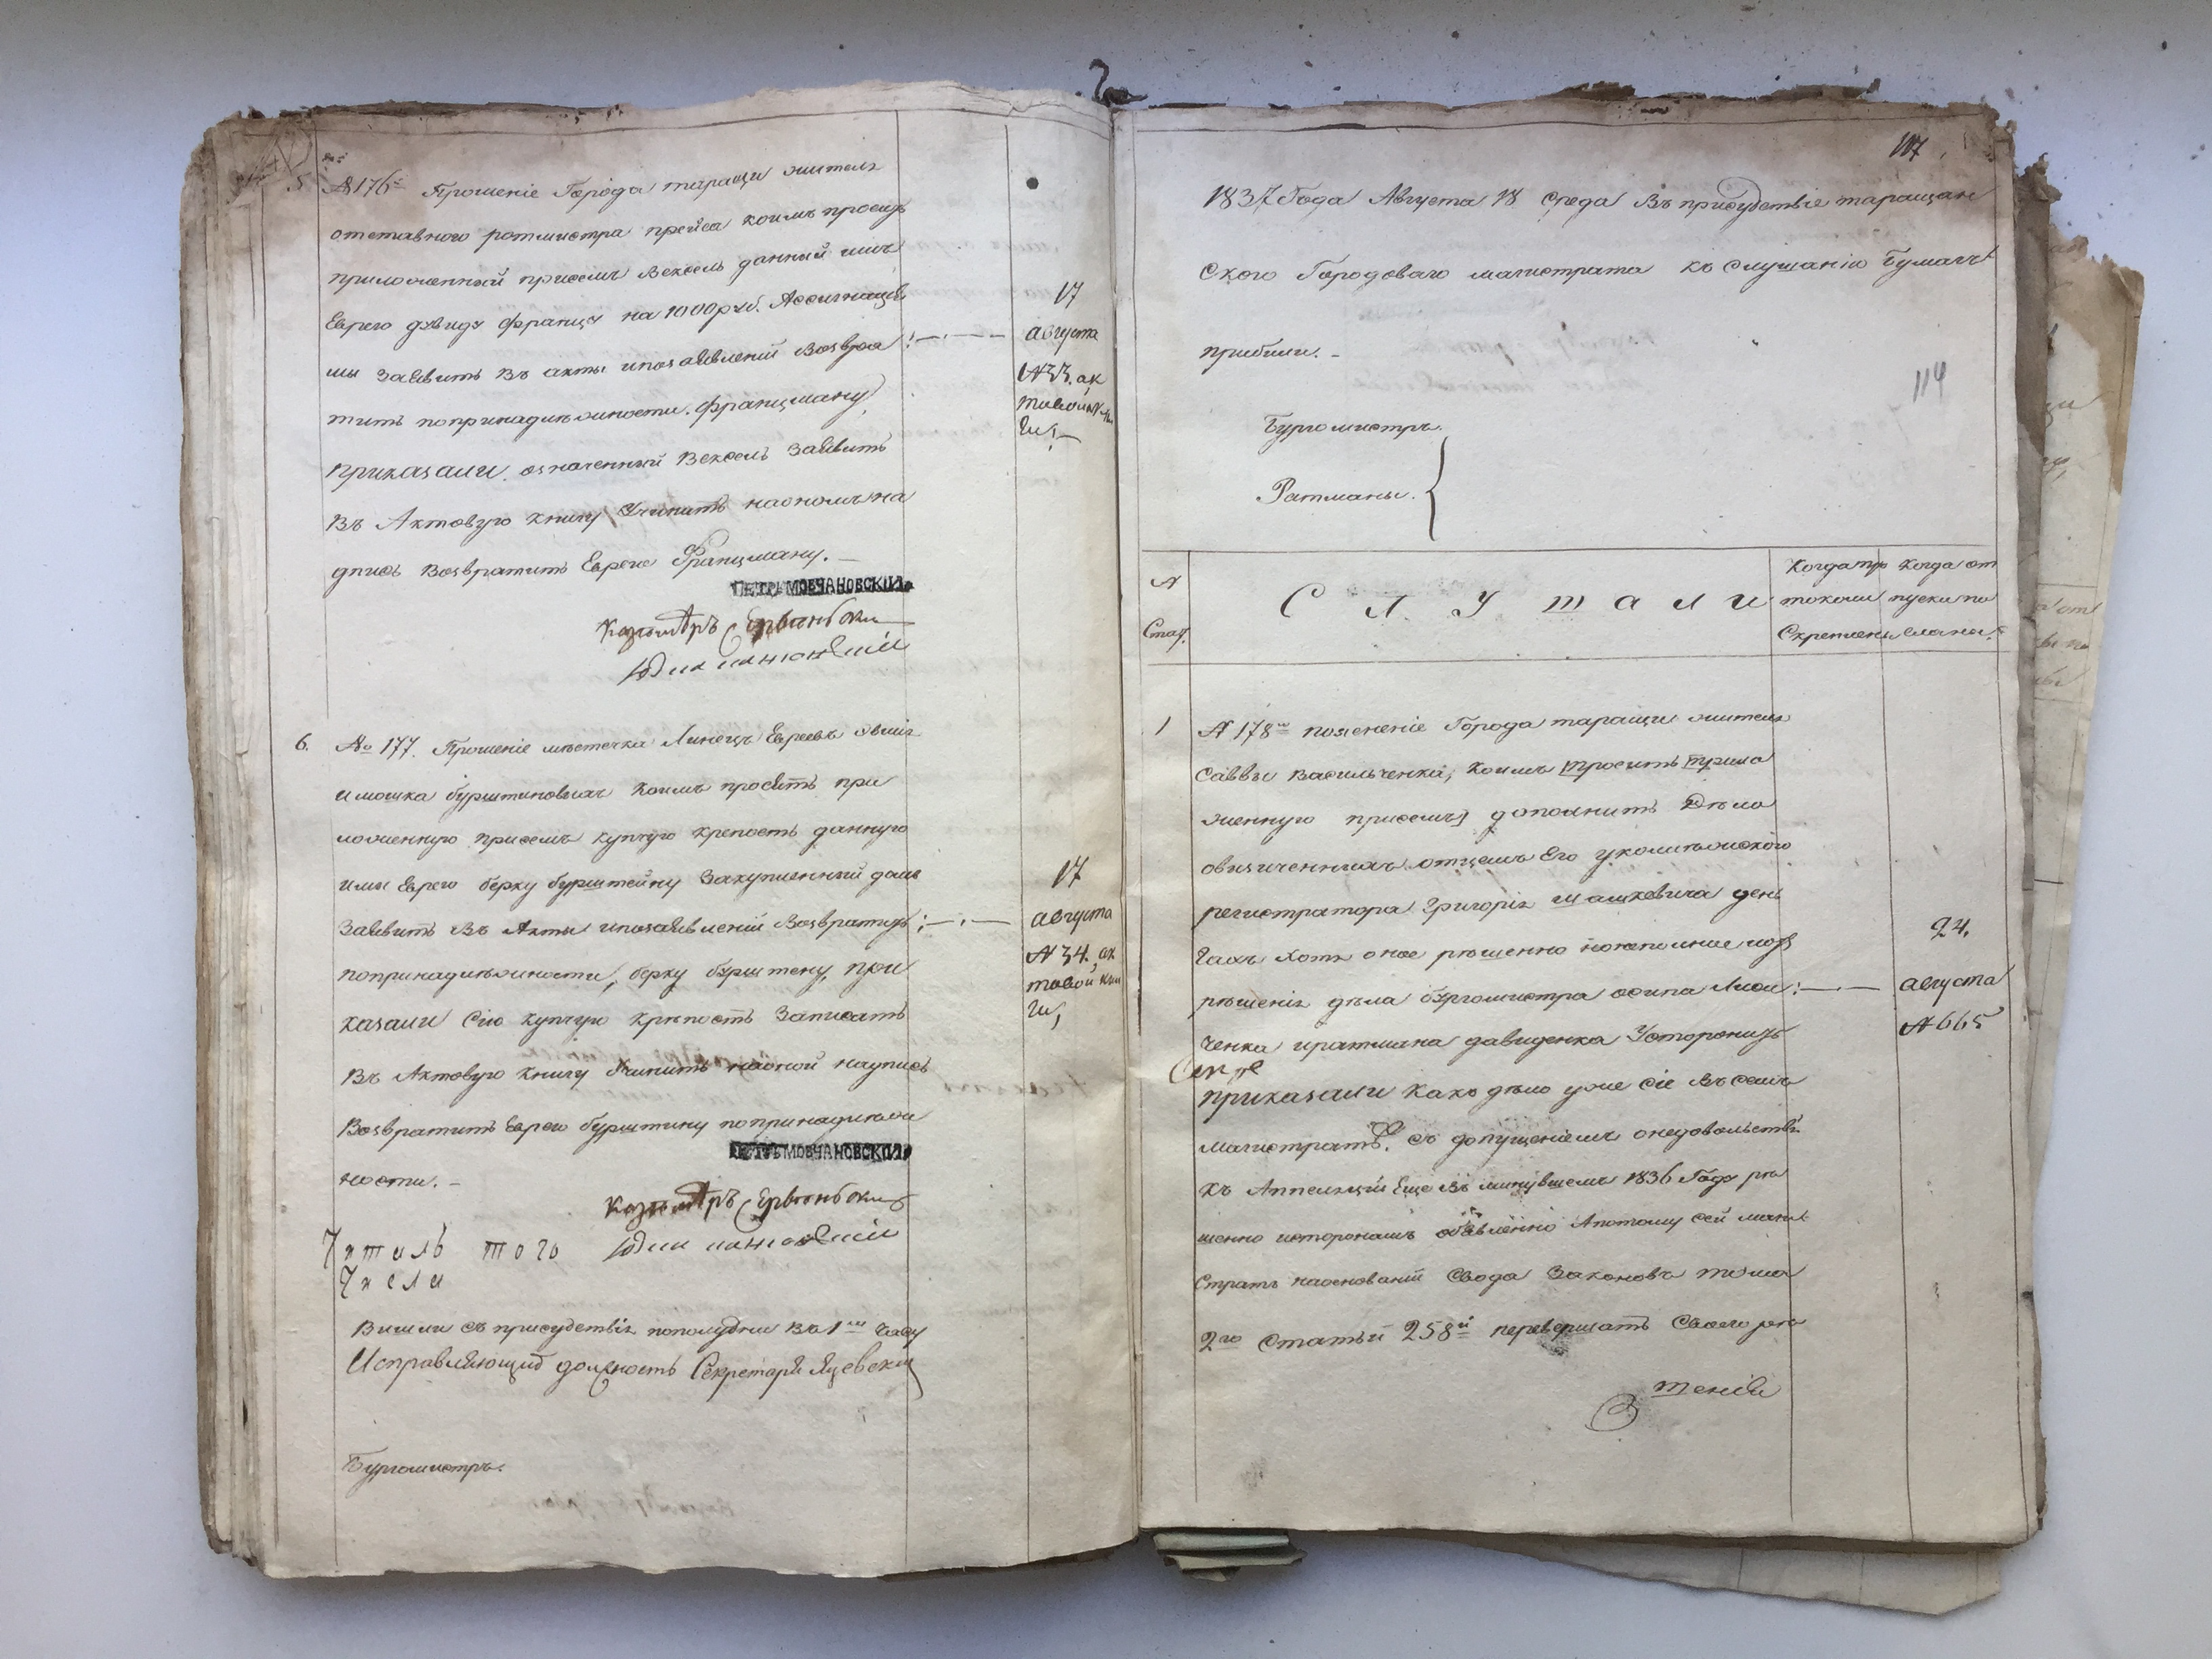 5 №176й Прошеніе Города таращи жителя
отставного ротмистра прейса коимъ проситъ
приложенный присемъ вексель данный имъ
Еврею давиду францу на 1000 руб. Ассигнаціи
мы заявить въ акты ипозаявленіи возвра
тить попринадлежности францману
приказали означенный вексель заявить
въ Актовую книгу Учинить наономъ на
дпись возвратить Еврею Францману.
17
августа
№33. ак
товой кни
ги,
ПЕТРЪ МОВЧАНОВСКІЙ
6. №177. Прошеніе местечка Линецъ Евреевъ
и мошка бурштиновыхъ коимъ просятъ при
ложенную присемъ купчую крепость данную
ими Еврею берку бурштейну Закупленный домъ
Заявить въ Акты ипозаявленіи возвратить
попринадлежности, берку бурштену, при
казали Сію купчую крепость Записать
въ Актовую книгу Учинить наоной надпись
возвратить Еврею бурштину попринадлеж
ности. –
17
августа
№34. ак
товой кни
ги,
ПЕТРЪ МОВЧАНОВСКІЙ
того
Числа
Вышли съ присудствія пополудни въ 1мъ часу
Исправляющій должность Секретаря Яцевскій
Бургомистръ.
117
1837 Года Августа 18 Среда Въ присудствіе таращан
ского Городоваго магистрата къ слушанію Бумагъ
прибыли. –
114
Бургомистръ.
Ратманы.
№
Стат.
Слушали
Когда про
токолы
Скреплены
Когда от
пуски по
сланы.
1 №178й поясненіе Города таращи жителя
Саввы васильченка, коимъ Проситъ прило
женную присемъ дополнить Дело
овзысченныхъ отцемъ Его уколлежского
регистратора Григорія машкевича день
гахъ хотя оное решенно
решенія дела бургомистра осипа Лисе
ченка иратмана давиденка Устронить
приказали какъ дело уже сіе въ семъ
магистрате, съ допущеніемъ онедовольствіи
къ Аппеляціи Еще въ минувшемъ 1836 Году ре
шенно исторонамъ объявленно Апотому сей маги
стратъ наоснованіи Свода Законовъ тома
2го статьи 258й перевершать Своего ре
шенія
24.
августа
№665